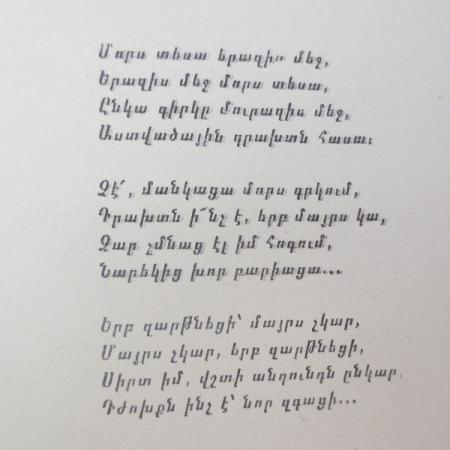 Մորս տեսա երազիս մեջ,
Երազիս մեջ մորս տեսա,
Ընկա գիրկը մուրազիս մեջ,
Աստվածային դրախտն հասա։
Չէ՛, մանկացա մորս գրկում,
Դրախտն ի՞նչ է, երբ մայրս կա,
Չար չմնաց էլ իմ հոգում,
Նարեկից խոր բարիացա...
Երբ զարթնեցի՝ մայրս չկար,
Մայրս չկար, երբ զարթնեցի,
Սիրտ իմ, վշտի անդունդն ընկար,
Դժոխքն ինչ է՝ նոր զգացի...